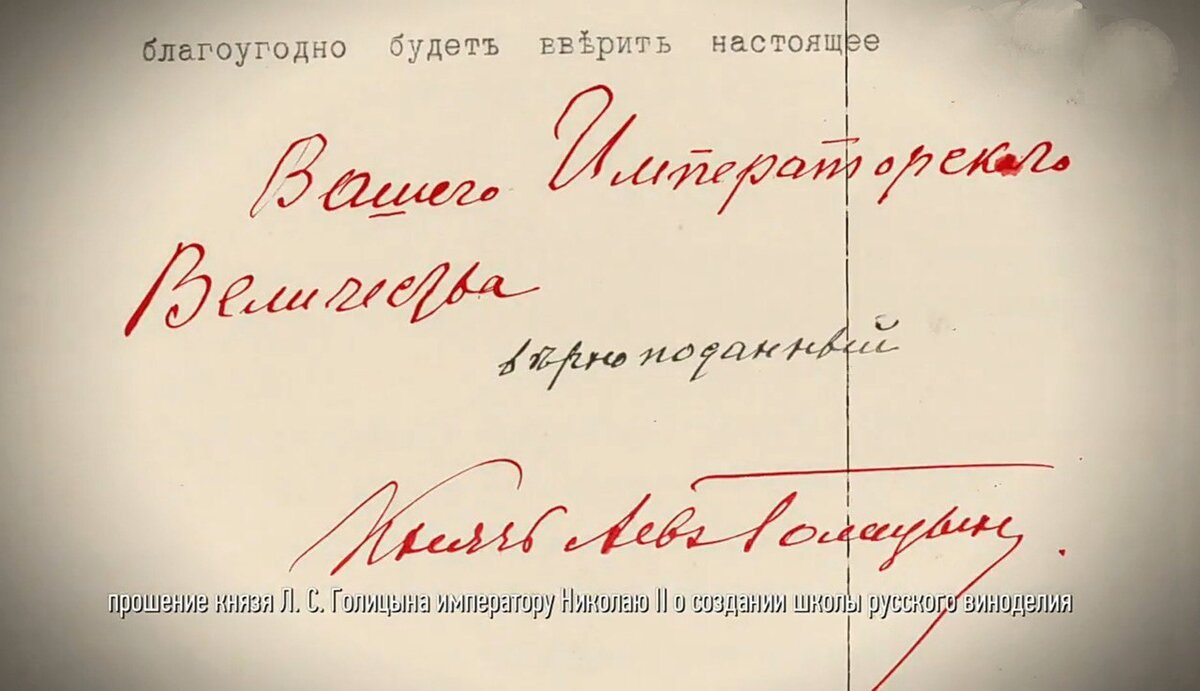 благоугодно будетъ ввѣрить настоящее
Вашего Императорского
Величества
вѣрноподанный
Князь Левъ Голицын
прошение князя Л. С. Голицына императору Николаю II о создании школы русского виноделия